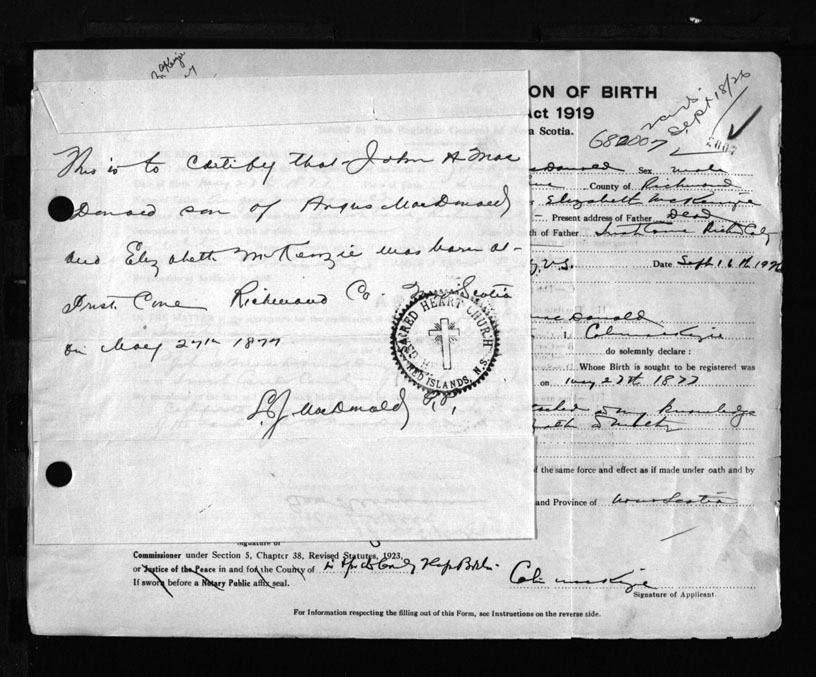 This is to certify that John A Mac
Donald son of Angus MacDonald
and Elizabeth McKenzie was born at
Irish Cove Richmond Co. Nova Scotia
on May 27th 1877
L.J. MacDonald P.P.,
SACRED HEART CHURCH
RED ISLANDS, N.S.
McKenzie
ON OF BIRTH
Act 1919
Issued by The Registrar General of Nova Scotia.
682007
Sept 18/26
2007
acDonald Sex male
County of Richmond
Elizabeth McKenzie
Present address of Father Dead
th of Father Irish Cove Rich Co
N.S. Date Sept. 16th 1926
MacDonald
I, Colin McKenzie
do solemnly declare :
Whose Birth is sought to be registered was
on May 27th 1877
attached & my knowledge
of the same force and effect as if made under oath and by
and Province of Nova Scotia
Signature of
Commissioner under Section 5, Chapter 38, Revised Statutes, 1923,
or Justice of the Peace in and for the County of
If sworn before a Notary Public affix seal.
Colin McKenzie
Signature of Applicant.
For Information respecting the filling out of this Form, see Instructions on the reverse side.